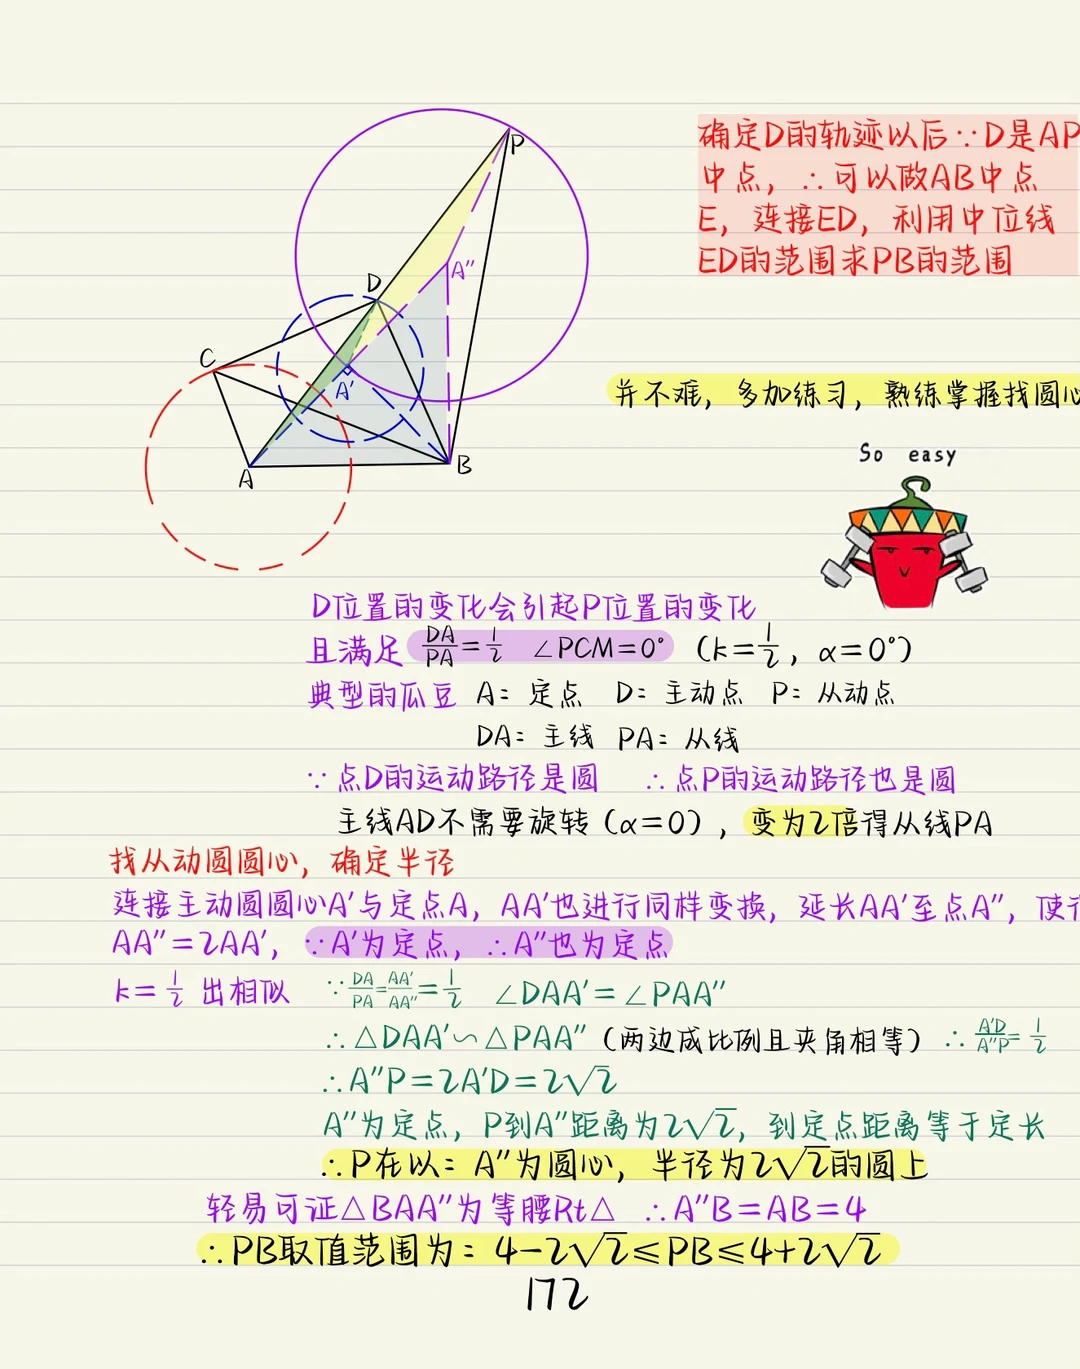 确定D的轨迹以后∵D是AP
中点，∴可以做AB中点
E，连接ED，利用中位线
ED的范围求PB的范围
P
A″
D
C
A′
A
B
并不难，多加练习，熟练掌握找圆心
So easy
D位置的变化会引起P位置的变化
且满足 DA/PA=1/2 ∠PCM=0° (k=1/2，α=0°)
典型的瓜豆 A：定点 D：主动点 P：从动点
DA：主线 PA：从线
∵点D的运动路径是圆 ∴点P的运动路径也是圆
主线AD不需要旋转(α=0)，变为2倍得从线PA
找从动圆圆心，确定半径
连接主动圆圆心A′与定点A，AA′也进行同样变换，延长AA′至点A″，使
AA″=2AA′，∵A′为定点，∴A″也为定点
k=1/2 出相似 ∵DA/PA=AA′/AA″=1/2 ∠DAA′=∠PAA″
∴△DAA′∽△PAA″(两边成比例且夹角相等) ∴A′D/A″P=1/2
∴A″P=2A′D=2√2
A″为定点，P到A″距离为2√2，到定点距离等于定长
∴P在以：A″为圆心，半径为2√2的圆上
轻易可证△BAA″为等腰Rt△ ∴A″B=AB=4
∴PB取值范围为：4-2√2≤PB≤4+2√2
172